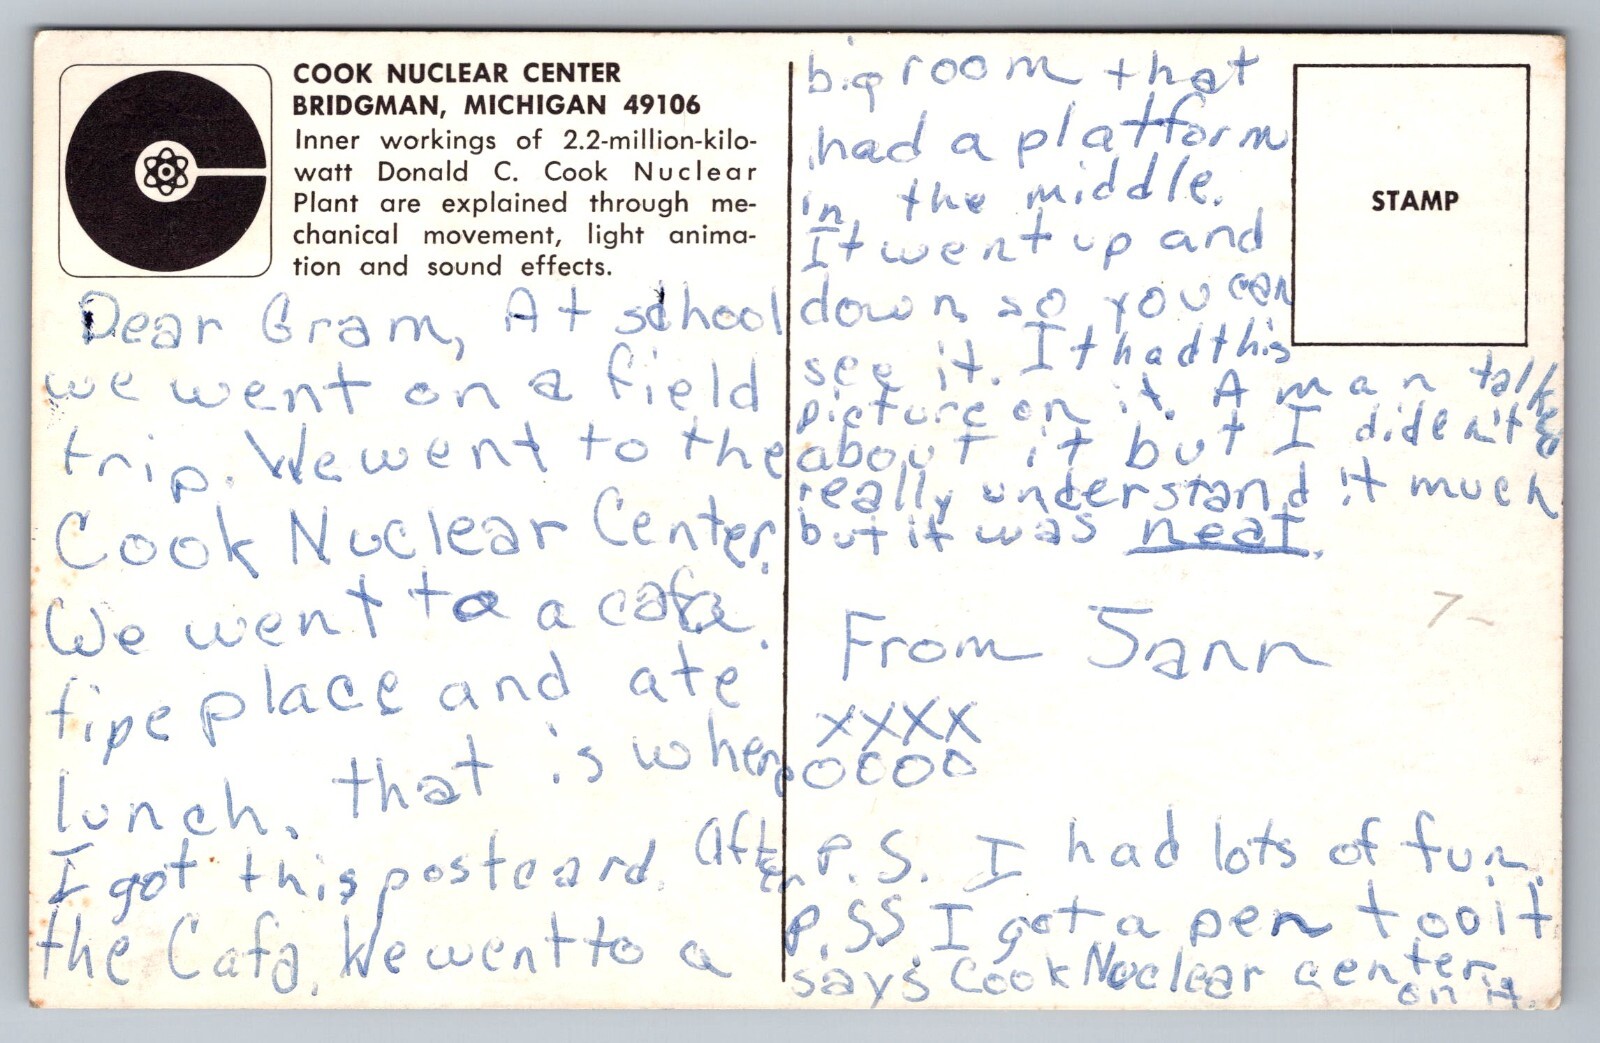 COOK NUCLEAR CENTER
BRIDGMAN, MICHIGAN 49106
Inner workings of 2.2-million-kilo-
watt Donald C. Cook Nuclear
Plant are explained through me-
chanical movement, light anima-
tion and sound effects.
Dear Gram, At school
we went on a field
trip. We went to the
Cook Nuclear Center.
We went to a cafa.
fipe place and ate
lunch. that is where
I got this postcard. After
the Cafa. We went to a
big room that
had a platform
in the middle.
It went up and
down so you can
see it. It had this
picture on it. A man talked
about it but I dide n't
really understand it much
but it was neat.
From Jann
xxxx
oooo
P.S. I had lots of fun.
P.SS I got a pen too it
says Cook Nuclear center
on it.
STAMP
7-